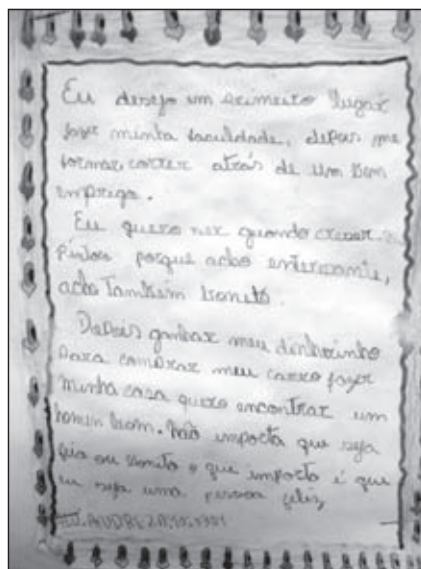 Eu desejo em primeiro lugar
fazer minha faculdade, depois me
formar, correr atrás de um bom
emprego.
Eu quero ser quando crescer
pintora porque acho enteresante,
acho Também bonito.
Depois ganhar meu dinheirinho
para comprar meu carro fazer
minha casa quero encontrar um
homem bom. Não importa que seja
feio ou bonito o que importa é que
eu seja uma pessoa feliz,